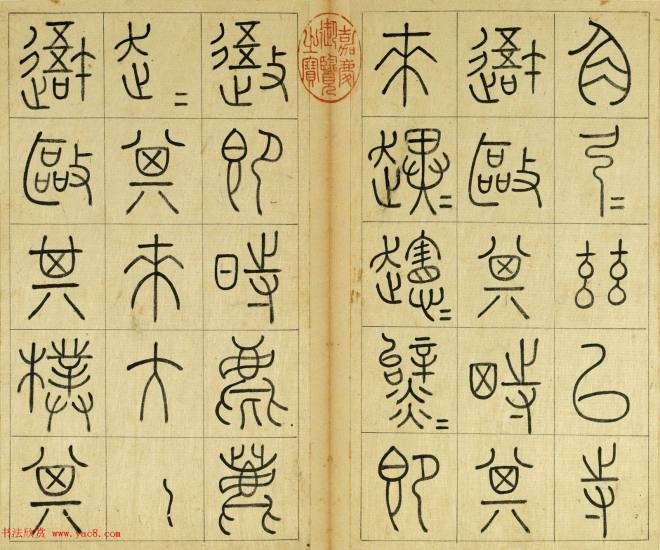 角弓=茲以寺
吾敺其時其
來趩==即
即時麀鹿
趚=其來大
吾敺其樸其
嘉慶御覽之寶
书法欣赏 www.yac8.com